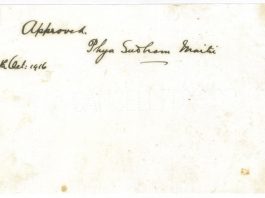 Approved.
Phya Sudham Maitri
Oct: 1916